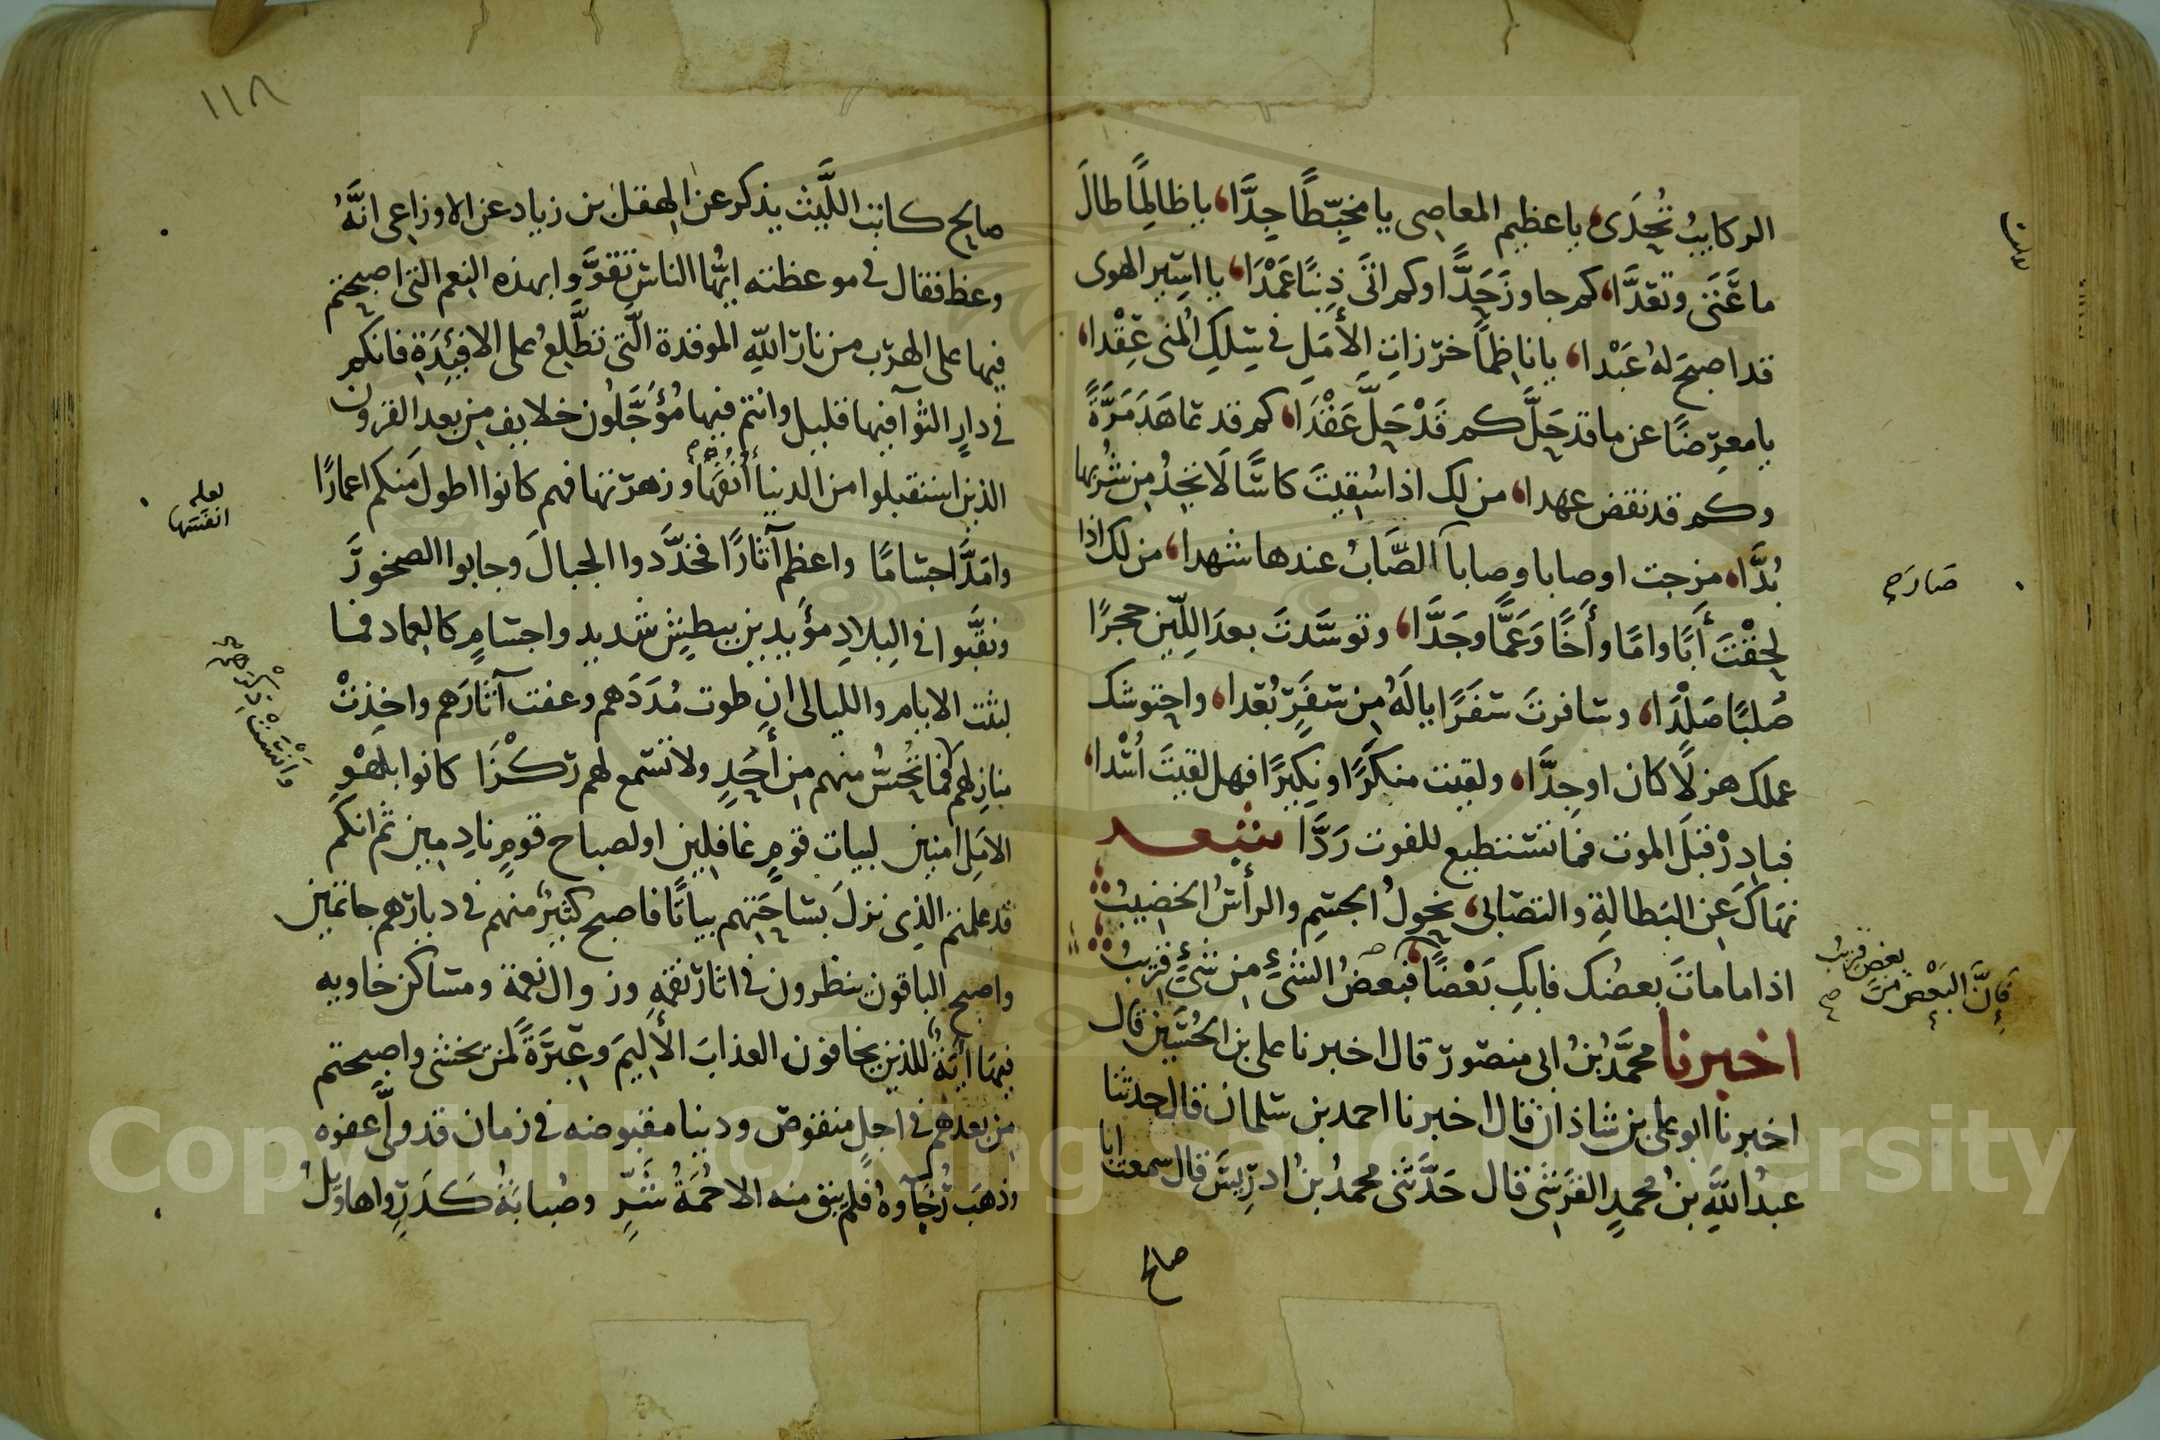 الركايبُ تُحدَى يا عظيم المعاصى يا مخبّطًا جِدًّا يا ظالمًا طالَ
ما عَتَى وتعدَّا كم جاوزَ حَدًّا وكم اتَى ذنبًا عَمْدَا يا اسير الهوى
قد اصبحَ لهُ عَبْدا يا ناظمًا خرزاتِ الأمَلِ فى سِلكِ المنى عِقْدا
يا معرِضًا عن ما قد حَلَّ كم قَدْ حَلَّ عَقْدَا كم قد عاهَدَ مَرَّةً
وكم قد نقض عهدا من لك اذا سُقِيتَ كاسًا لَا تجدُ مِن شُربها
بُدًّا مزجت اوصابا وصابا الصَّابُ عندها شهدا من لك اذا
لحِقْتَ أبًا وامًا وأخًا وَعَمًّا وجَدًّا وتوسَّدتَ بعدَ اللِّين حجرًا
صُلبًا صَلْدَا وسافرتَ سَفَرًا يا لَهُ مِن سَفَرٍ بُعدا واحتوشك
عملك هزلًا كان او جِدًّا ولقيت منكرًا ونكيرًا فهل لقيتَ اُسْدا
فبادِرْ قبلَ الموت فما تستطيع للفوت رَدَّا شعـد
نهَاكَ عَنِ البَطالةِ والتصَابى نحولُ الجسمِ والرأسُ الخضِيبُ
اذا ما ماتَ بعضُك فابكِ بَعْضًا فبعضُ الشئِ مِن شئٍ قريبُ
اخبرنا محمَّدُ بنُ ابى منصور قال اخبرنا على بن الحُسَين قال
اخبرنا ابو على بن شاذان قال اخبرنا احمد بن سلمان قال حدثنا
عبدُ اللّهِ بنُ محمدٍ القرشى قال حَدَّثنى محمدُ بنُ ادرِيسَ قال سمعت ابا
صالح
صَارَ صح
فَإنَّ البَعْضَ مِنْ
بعضٍ قريبُ
صح
١١٨
صالح كاتب اللَّيث يذكر عن الهقل بن زياد عن الاوزاعى انَّهُ
وعظ فقال فى موعظته ايُّها الناس تقوَّوا بهذه النعم التى اصبحتم
فيها على الهرب من نار اللّهِ الموقدة الَّتى تطَّلِعُ على الافئِدَةِ فانكم
فى دارٍ الثوآ فيها قليل وانتم فيها مُؤَجَّلُون خلايف من بعد القرون
الذين استقبلوا من الدنيا أنُفَهَا وزهرتها فهم كانوا اطول منكم اعمارًا
وامَدَّ اجسَامًا واعظم آثارًا فخَدَّدوا الجبالَ وجابوا الصخورَ
ونقَّبوا فى البِلادِ مؤيدين ببطشٍ شديدٍ واجسَامٍ كالعِماد فما
لبثت الايام والليالى ان طوت مُدَدَهم وعفت آثارَهم واخذتْ
منازلهم فما تُحسُّ منهم مِن أحدٍ ولا تسمع لهم رِكْزًا كانوا بلَهْوٍ
الاَمَلِ امنين لبيات قومٍ غافلِين اولصباح قومٍ نادِمين ثم انكم
قد علمتم الذى نزلَ بسَاحَتهم بياتًا فاصبح كثيرٌ منهم فى ديارهم جاثمين
واصبح الباقون ينظرون فى اثار نقمهِ وزوال نعمة ومسَاكن خاويه
فيهَا آيَةٌ للذين يخافون العذابَ الألِيمَ وعِبْرَةً لمن يخشى واصبحتم
مِن بعدهم فى اجلٍ منقوص ودنيا مقبوضه فى زمان قد ولَّى عفوه
وذهبَ رُخَآوهُ فلم يبق منه الا حُمَةُ شَرٍّ وصُبابَةُ كَدَرٍ واهاويلُ
لعله
انفسَها